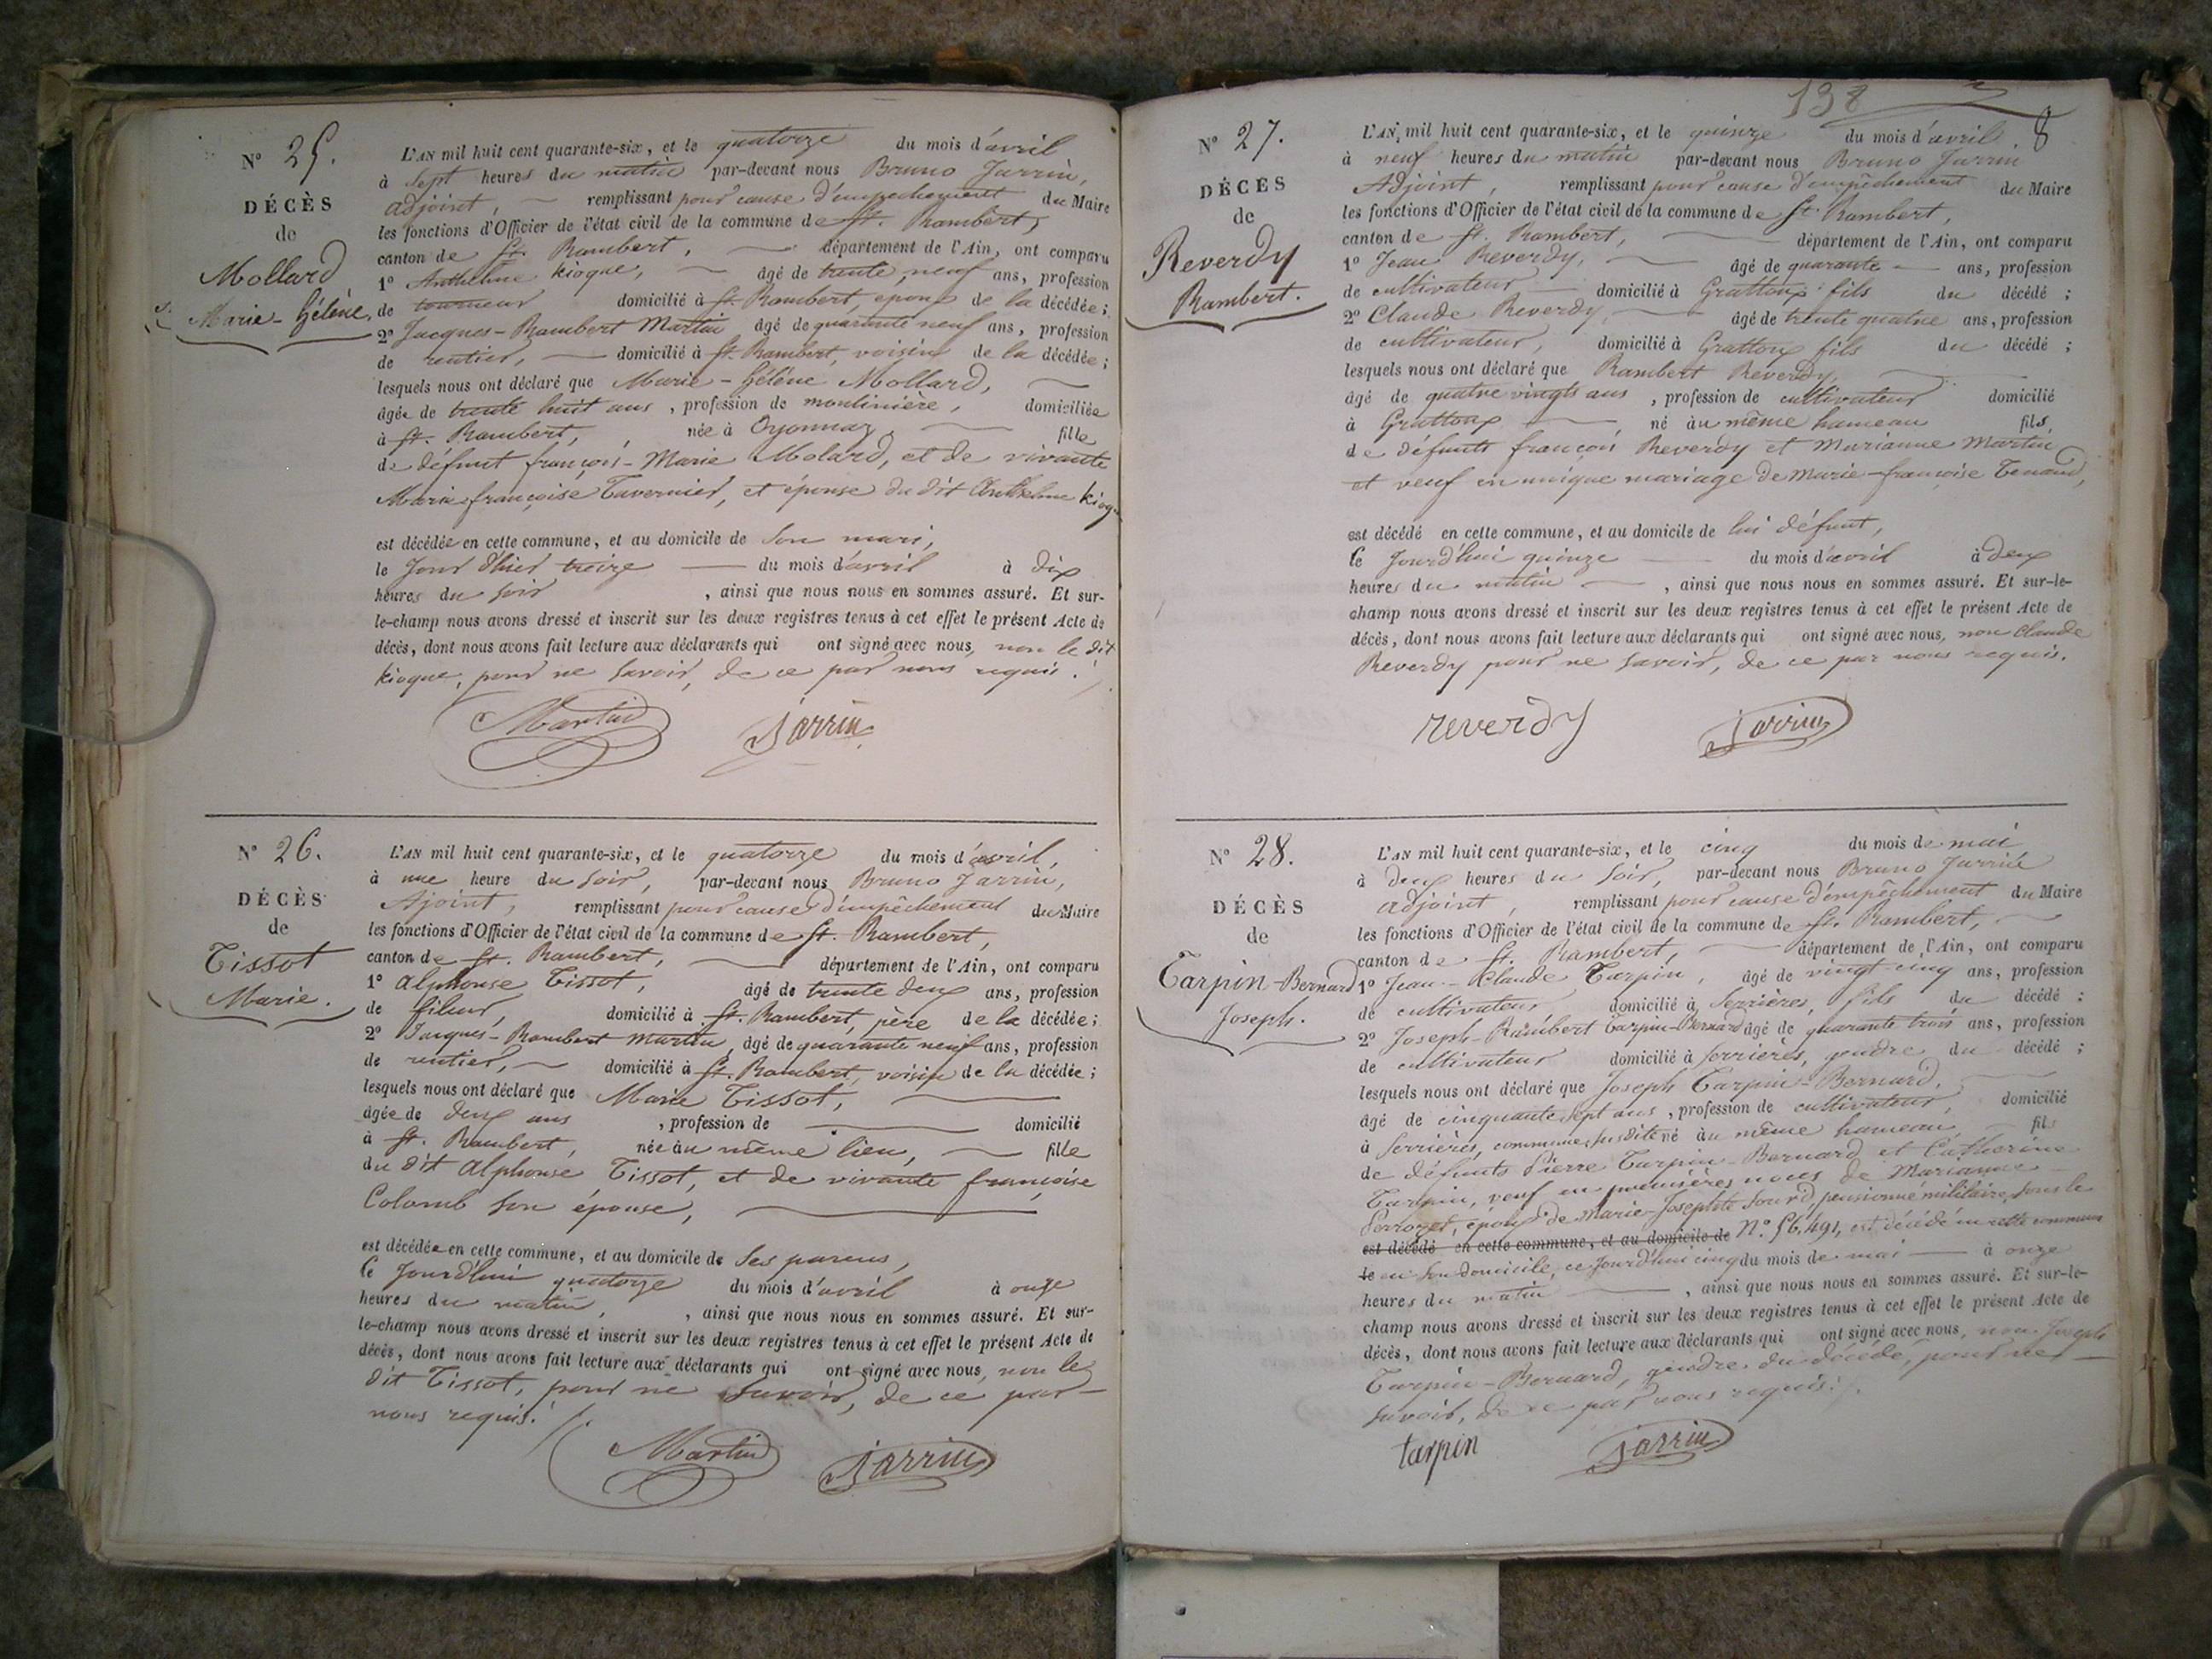 N° 25.
DÉCÈS
de
Mollard
Marie-hélène.
L'AN mil huit cent quarante-six, et le quatorze du mois d'avril
à sept heures du matin par-devant nous Bruno Jarrin,
adjoint, remplissant pour cause d'empechement du Maire
les fonctions d'Officier de l'état civil de la commune de St. Rambert,
canton de St. Rambert, département de l'Ain, ont comparu
1° Anthelme kiogue, âgé de trente neuf ans, profession
de tourneur domicilié à St. Rambert, époux de la décédée;
2° Jacques-Rambert Martin âgé de quarante neuf ans, profession
de rentier, domicilié à St. Rambert, voisin de la décédée;
lesquels nous ont déclaré que Marie-hélène Mollard,
âgée de trente huit ans, profession de moulinière, domiciliée
à St. Rambert, née à Oyonnaz, fille
de défunt françois-Marie Molard, et de vivante
Marie françoise Tavernier, et épouse du dit Anthelme kiogue
est décédée en cette commune, et au domicile de son mari,
le jour d'hier treize du mois d'avril à dix
heures du soir, ainsi que nous nous en sommes assuré. Et sur-
le-champ nous avons dressé et inscrit sur les deux registres tenus à cet effet le présent Acte de
décès, dont nous avons fait lecture aux déclarants qui ont signé avec nous, non le dit
kiogue, pour ne savoir, de ce par nous requis.
Martin Jarrin
N° 26.
DÉCÈS
de
Tissot
Marie.
L'AN mil huit cent quarante-six, et le quatorze du mois d'avril,
à une heure du soir, par-devant nous Bruno Jarrin,
Ajoint, remplissant pour cause d'empêchement du Maire
les fonctions d'Officier de l'état civil de la commune de St. Rambert,
canton de St. Rambert, département de l'Ain, ont comparu
1° alphonse Tissot, âgé de trente deux ans, profession
de fileur, domicilié à St. Rambert, père de la décédée;
2° Jacques-Rambert Martin, âgé de quarante neuf ans, profession
de rentier, domicilié à St. Rambert, voisin de la décédée;
lesquels nous ont déclaré que Marie Tissot,
âgée de deux ans, profession de domicilié
à St. Rambert, née au même lieu, fille
du dit alphonse Tissot, et de vivante françoise
Colomb son épouse,
est décédée en cette commune, et au domicile de ses parens,
le jourd'hui quatorze du mois d'avril à onze
heures du matin, ainsi que nous nous en sommes assuré. Et sur-
le-champ nous avons dressé et inscrit sur les deux registres tenus à cet effet le présent Acte de
décès, dont nous avons fait lecture aux déclarants qui ont signé avec nous, non le
dit Tissot, pour ne savoir, de ce par
nous requis.
Martin Jarrin
138
8
N° 27.
DÉCÈS
de
Reverdy
Rambert.
L'AN, mil huit cent quarante-six, et le quinze du mois d'avril
à neuf heures du matin par-devant nous Bruno Jarrin
Adjoint, remplissant pour cause d'empêchement du Maire
les fonctions d'Officier de l'état civil de la commune de St. Rambert,
canton de St. Rambert, département de l'Ain, ont comparu
1° Jean Reverdy, âgé de quarante ans, profession
de cultivateur domicilié à Grattoux fils du décédé;
2° Claude Reverdy, âgé de trente quatre ans, profession
de cultivateur, domicilié à Grattoux fils du décédé;
lesquels nous ont déclaré que Rambert Reverdy,
âgé de quatre vingts ans, profession de cultivateur domicilié
à Grattoux né au même hameau fils,
de défunts françois Reverdy et Marianne Martin
et veuf en unique mariage de Marie-françoise Tenand,
est décédé en cette commune, et au domicile de lui défunt,
le jourd'hui quinze du mois d'avril à deux
heures du matin, ainsi que nous nous en sommes assuré. Et sur-le-
champ nous avons dressé et inscrit sur les deux registres tenus à cet effet le présent Acte de
décès, dont nous avons fait lecture aux déclarants qui ont signé avec nous, non Claude
Reverdy pour ne savoir, de ce par nous requis.
reverdy Jarrin
N° 28.
DÉCÈS
de
Tarpin-Bernard
Joseph.
L'AN mil huit cent quarante-six, et le cinq du mois de mai
à deux heures du soir, par-devant nous Bruno Jarrin
adjoint, remplissant pour cause d'empêchement du Maire
les fonctions d'Officier de l'état civil de la commune de St. Rambert,
canton de St. Rambert, département de l'Ain, ont comparu
1° Jean-Claude Tarpin, âgé de vingt cinq ans, profession
de cultivateur domicilié à Serrières, fils du décédé;
2° Joseph-Rambert Tarpin-Bernard âgé de quarante trois ans, profession
de cultivateur domicilié à Serrières, gendre du décédé;
lesquels nous ont déclaré que Joseph Tarpin-Bernard,
âgé de cinquante sept ans, profession de cultivateur, domicilié
à Serrières, commune susdite né au même hameau, fils
de défunts Pierre Tarpin-Bernard et Catherine
Tarpin, veuf en premières noces de Marianne
Perrozet, époux de Marie-Josephte Sourd, pensionné militaire, sous le
est décédé en cette commune, et au domicile de N° 56,491, est décédé en cette commune
le en son domicile, ce jourd'hui cinq du mois de mai à onze
heures du matin, ainsi que nous nous en sommes assuré. Et sur-le-
champ nous avons dressé et inscrit sur les deux registres tenus à cet effet le présent Acte de
décès, dont nous avons fait lecture aux déclarants qui ont signé avec nous, non Joseph
Tarpin-Bernard, gendre du décédé, pour ne
savoir, de ce par nous requis.
tarpin Jarrin